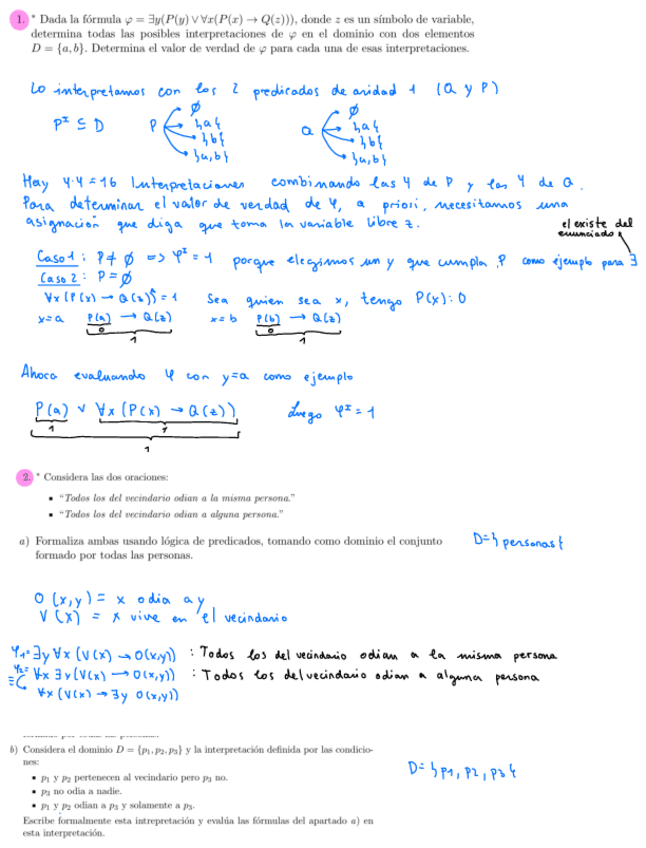 1. * Dada la fórmula φ = ∃y(P(y) ∨ ∀x(P(x) → Q(z))), donde z es un símbolo de variable,
determina todas las posibles interpretaciones de φ en el dominio con dos elementos
D = {a, b}. Determina el valor de verdad de φ para cada una de esas interpretaciones.
Lo interpretamos con los 2 predicados de aridad 1 (Q y P)
P^I ⊆ D P ∅ {a} {b} {a,b} Q ∅ {a} {b} {a,b}
Hay 4·4 = 16 Interpretaciones combinando las 4 de P y las 4 de Q.
Para determinar el valor de verdad de φ, a priori, necesitamos una
asignación que diga que toma la variable libre z.
el existe del
enunciado
Caso 1: P ≠ ∅ => φ^I = 1 porque elegimos un y que cumpla P como ejemplo para ∃
Caso 2: P = ∅
∀x (P(x) → Q(z))^I = 1 Sea quien sea x, tengo P(x): 0
x=a P(a) → Q(z) x=b P(b) → Q(z)
0 0
1 1
Ahora evaluando φ con y=a como ejemplo
P(a) ∨ ∀x (P(x) → Q(z)) Luego φ^I = 1
1 1
1
2. * Considera las dos oraciones:
▪ “Todos los del vecindario odian a la misma persona.”
▪ “Todos los del vecindario odian a alguna persona.”
a) Formaliza ambas usando lógica de predicados, tomando como dominio el conjunto
formado por todas las personas.
D={personas}
O (x,y) = x odia a y
V (x) = x vive en el vecindario
φ1 = ∃y ∀x (V(x) → O(x,y)) : Todos los del vecindario odian a la misma persona
φ2 = ∀x ∃y (V(x) → O(x,y)) : Todos los del vecindario odian a alguna persona
≡ ∀x (V(x) → ∃y O(x,y))
b) Considera el dominio D = {p1, p2, p3} y la interpretación definida por las condicio-
nes:
D={p1, p2, p3}
▪ p1 y p2 pertenecen al vecindario pero p3 no.
▪ p3 no odia a nadie.
▪ p1 y p2 odian a p3 y solamente a p3.
Escribe formalmente esta intrepretación y evalúa las fórmulas del apartado a) en
esta interpretación.